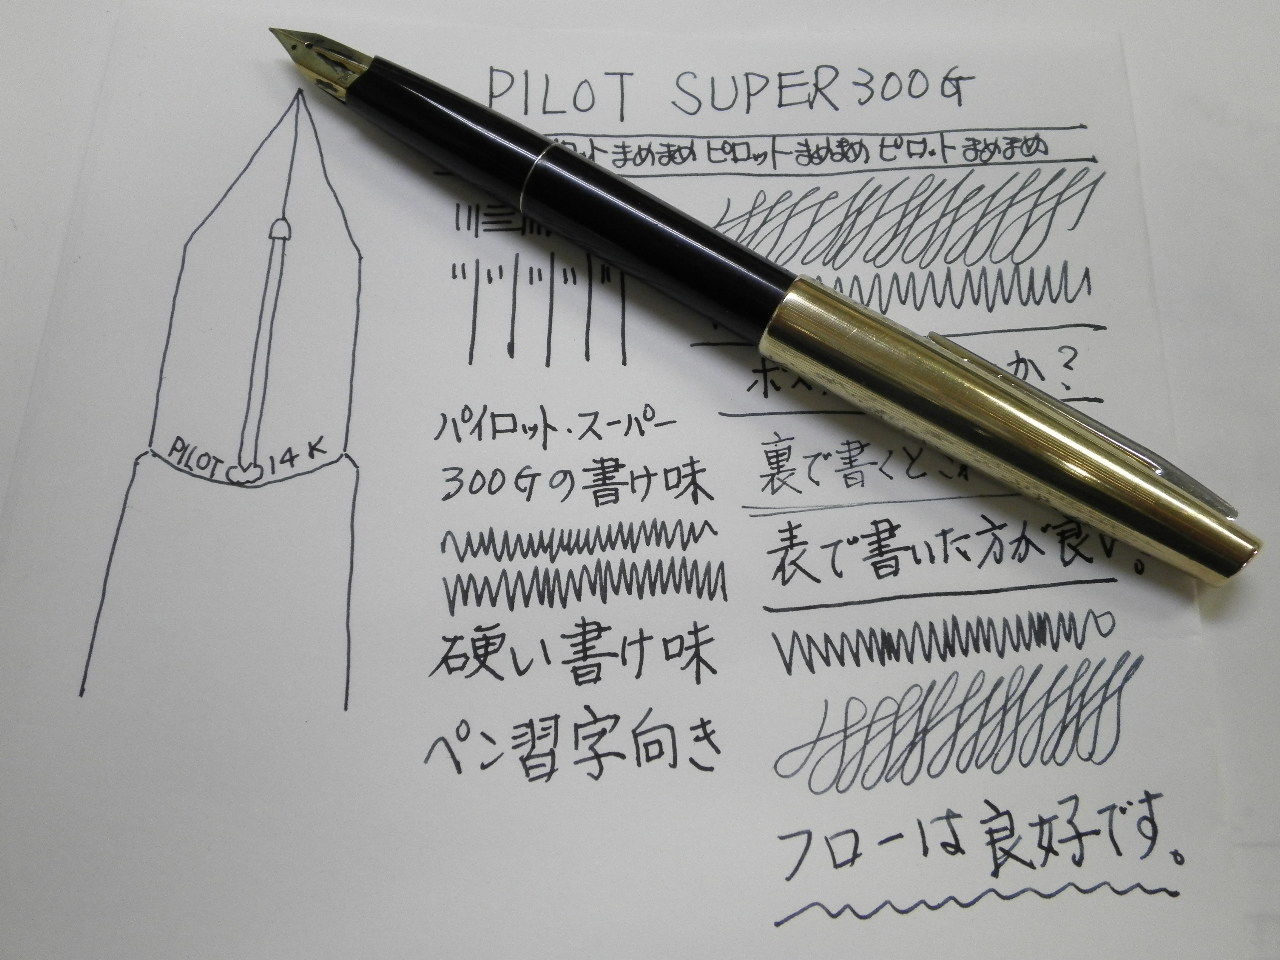 PILOT SUPER 300G
ロット まめまめ ピロット まめまめ ピロット まめまめ
か?
パイロット・スーパー
300Gの書け味
硬い書け味
ペン習字向き
裏で書くと
表で書いた方が良い。
フローは良好です。
PILOT 14K